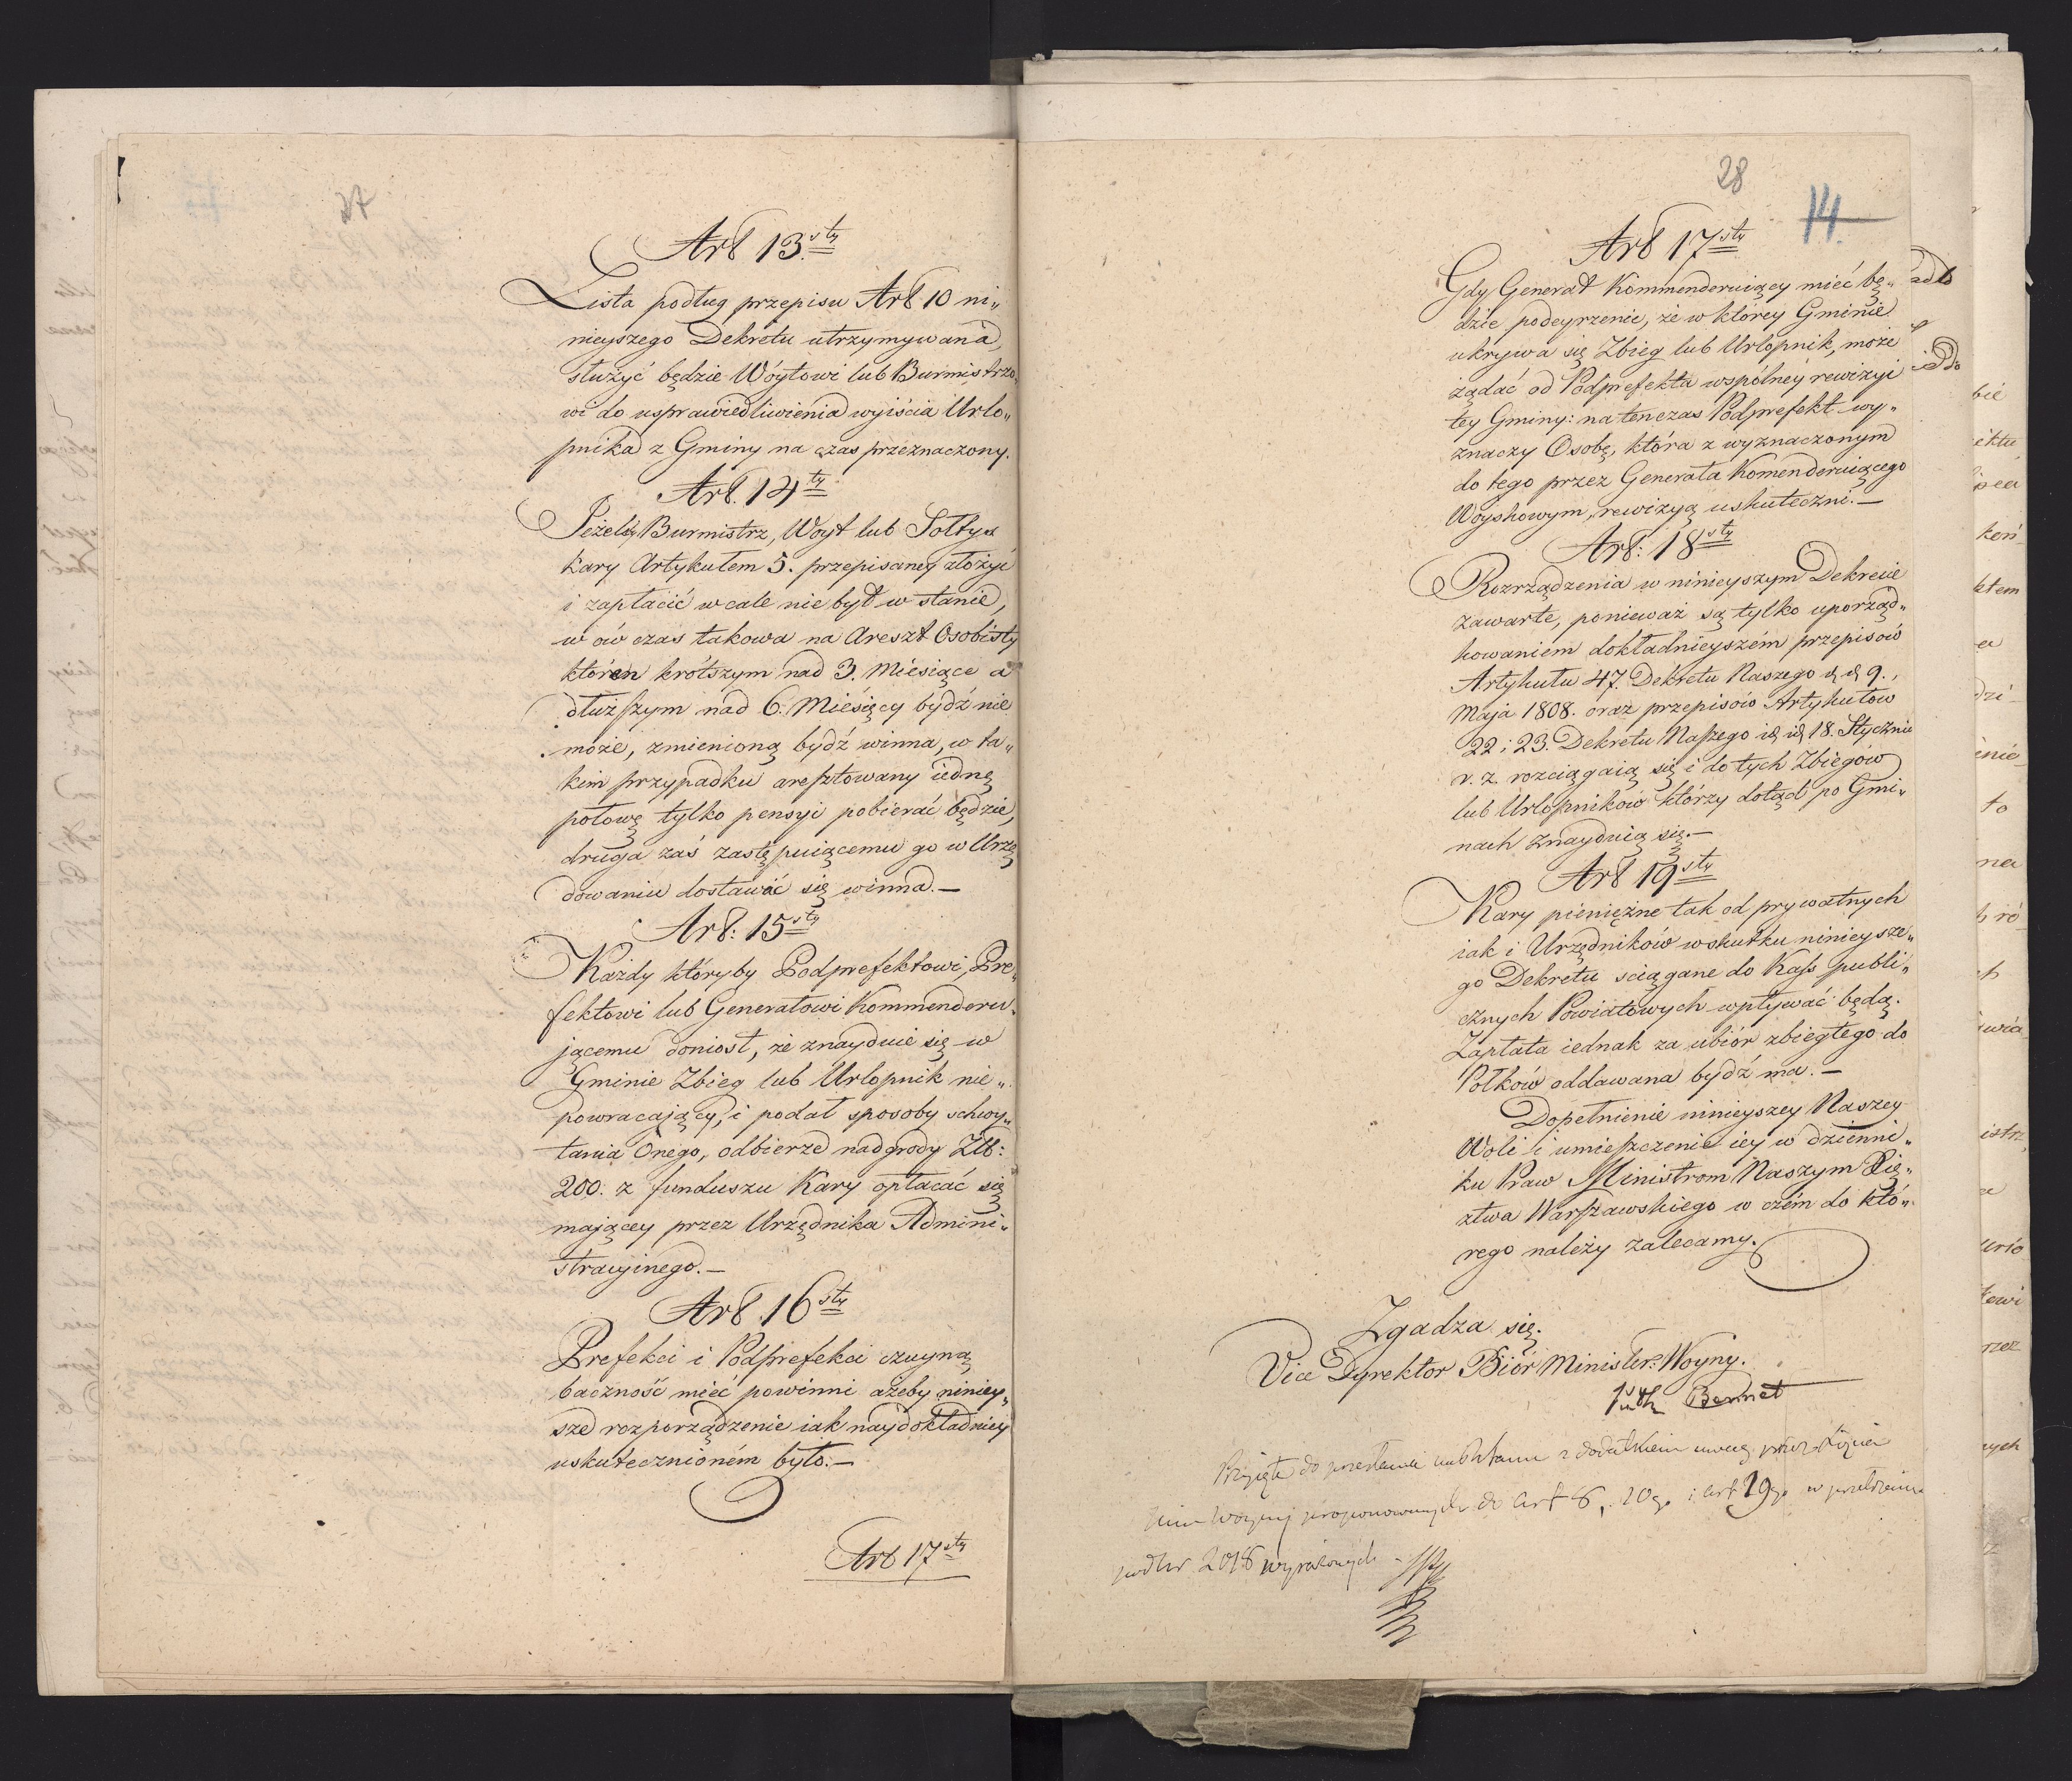 27
Art 13.sty
Lista podług przepisu Art 10 ni„
nieyszego Dekretu utrzymywana,
służyć będzie Wóytowi lub Burmistrzo„
wi do usprawiedliwienia wyiścia Urlo„
pnika z Gminy na czas przeznaczony.
Art. 14ty
Jeżeliby Burmistrz, Woyt lub Sołtys
kary Artykułem 5. przepisaney złożyć
i zapłacić wcale nie był w stanie,
w ów czas takowa na Areszt Osobisty
któren krótszym nad 3. Miesiące a
dłuższym nad 6. Miésięcy bydź nie
może, zmienioną bydź winna, w ta„
kim przypadku aresztowany iedną
połowę tylko pensyi pobierać będzie,
druga zaś zastępuiącemu go w Urzę
dowaniu dostawać się winna.—
Art: 15sty
Każdy któryby Podprefektowi, Pre„
fektowi lub Generałowi Kommenderu„
jącemu doniosł, że znayduie się w
Gminie Zbieg lub Urlopnik nie„
powracający, i podał sposoby schwy„
tania Onego, odbierze nadgrody Złt:
200. z funduszu Kary opłacać się
mającey przez Urzędnika Admini„
stracyinego.—
Art. 16sty
Prefekci i Podprefekci czuyną
baczność mieć powinni ażeby niniey„
sze rozporządzenie iak naydokładniey
uskutecznioném było.—
Art 17sty
28
14
Art 17sty
Gdy Generał Kommenderuiący mieć bę„
dzie podeyrzenie, że w którey Gminie
ukrywa się Zbieg lub Urlopnik, może
żądać od Podprefekta wspólney rewizyi
tey Gminy: na tenczas Podprefekt wy„
znaczy Osobę, która z wyznaczonym
do tego przez Generała Komenderuiącego
Woyskowym, rewizyą uskuteczni.—
Art: 18sty
Rozrządzenia w ninieyszym Dekrecie
zawarte, ponieważ są tylko uporząd„
kowaniem dokładnieyszém przepisów
Artykułu 47. Dekretu Naszego d d 9.,
Maja 1808. oraz przepisów Artykułow
22 i 23. Dekretu Naszego id id 18. Stycznia
r. z. rozciągaią się i do tych Zbiegów
lub Urlopników którzy dotąd po Gmi„
nach znayduią się.—
Art 19sty
Kary pieniężne tak od prywatnych
iak i Urzędników wskutku ninieysze„
go Dekretu sciągane do Kass publi„
cznych Powiatowych wpływać będą.
Zapłata iednak za ubiór zbiegłego do
Połków oddawana bydź ma.—
Dopełnienie ninieyszey Naszey
Woli i umieszczenie iey w dzienni„
ku Praw Ministrom Naszym Xię„
ztwa Warszawskiego w czém do któ„
rego należy zalecamy.
Zgadza się.
Vice Dyrektor Biór Minister: Woyny.
Bennet
Przyięte do przesłania z dodatkiem uwag przez
Woyny proponowanych do Art 6, 10go i Art 19go w
pod Nr 2018 wyrażonych